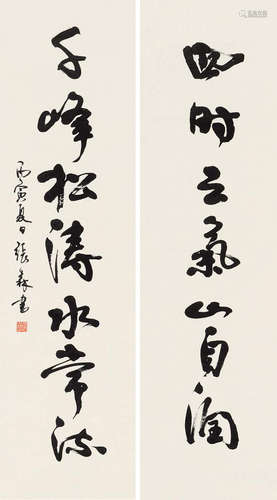 四时云气山自润
千峰松涛水常流
丙寅夏日张森书